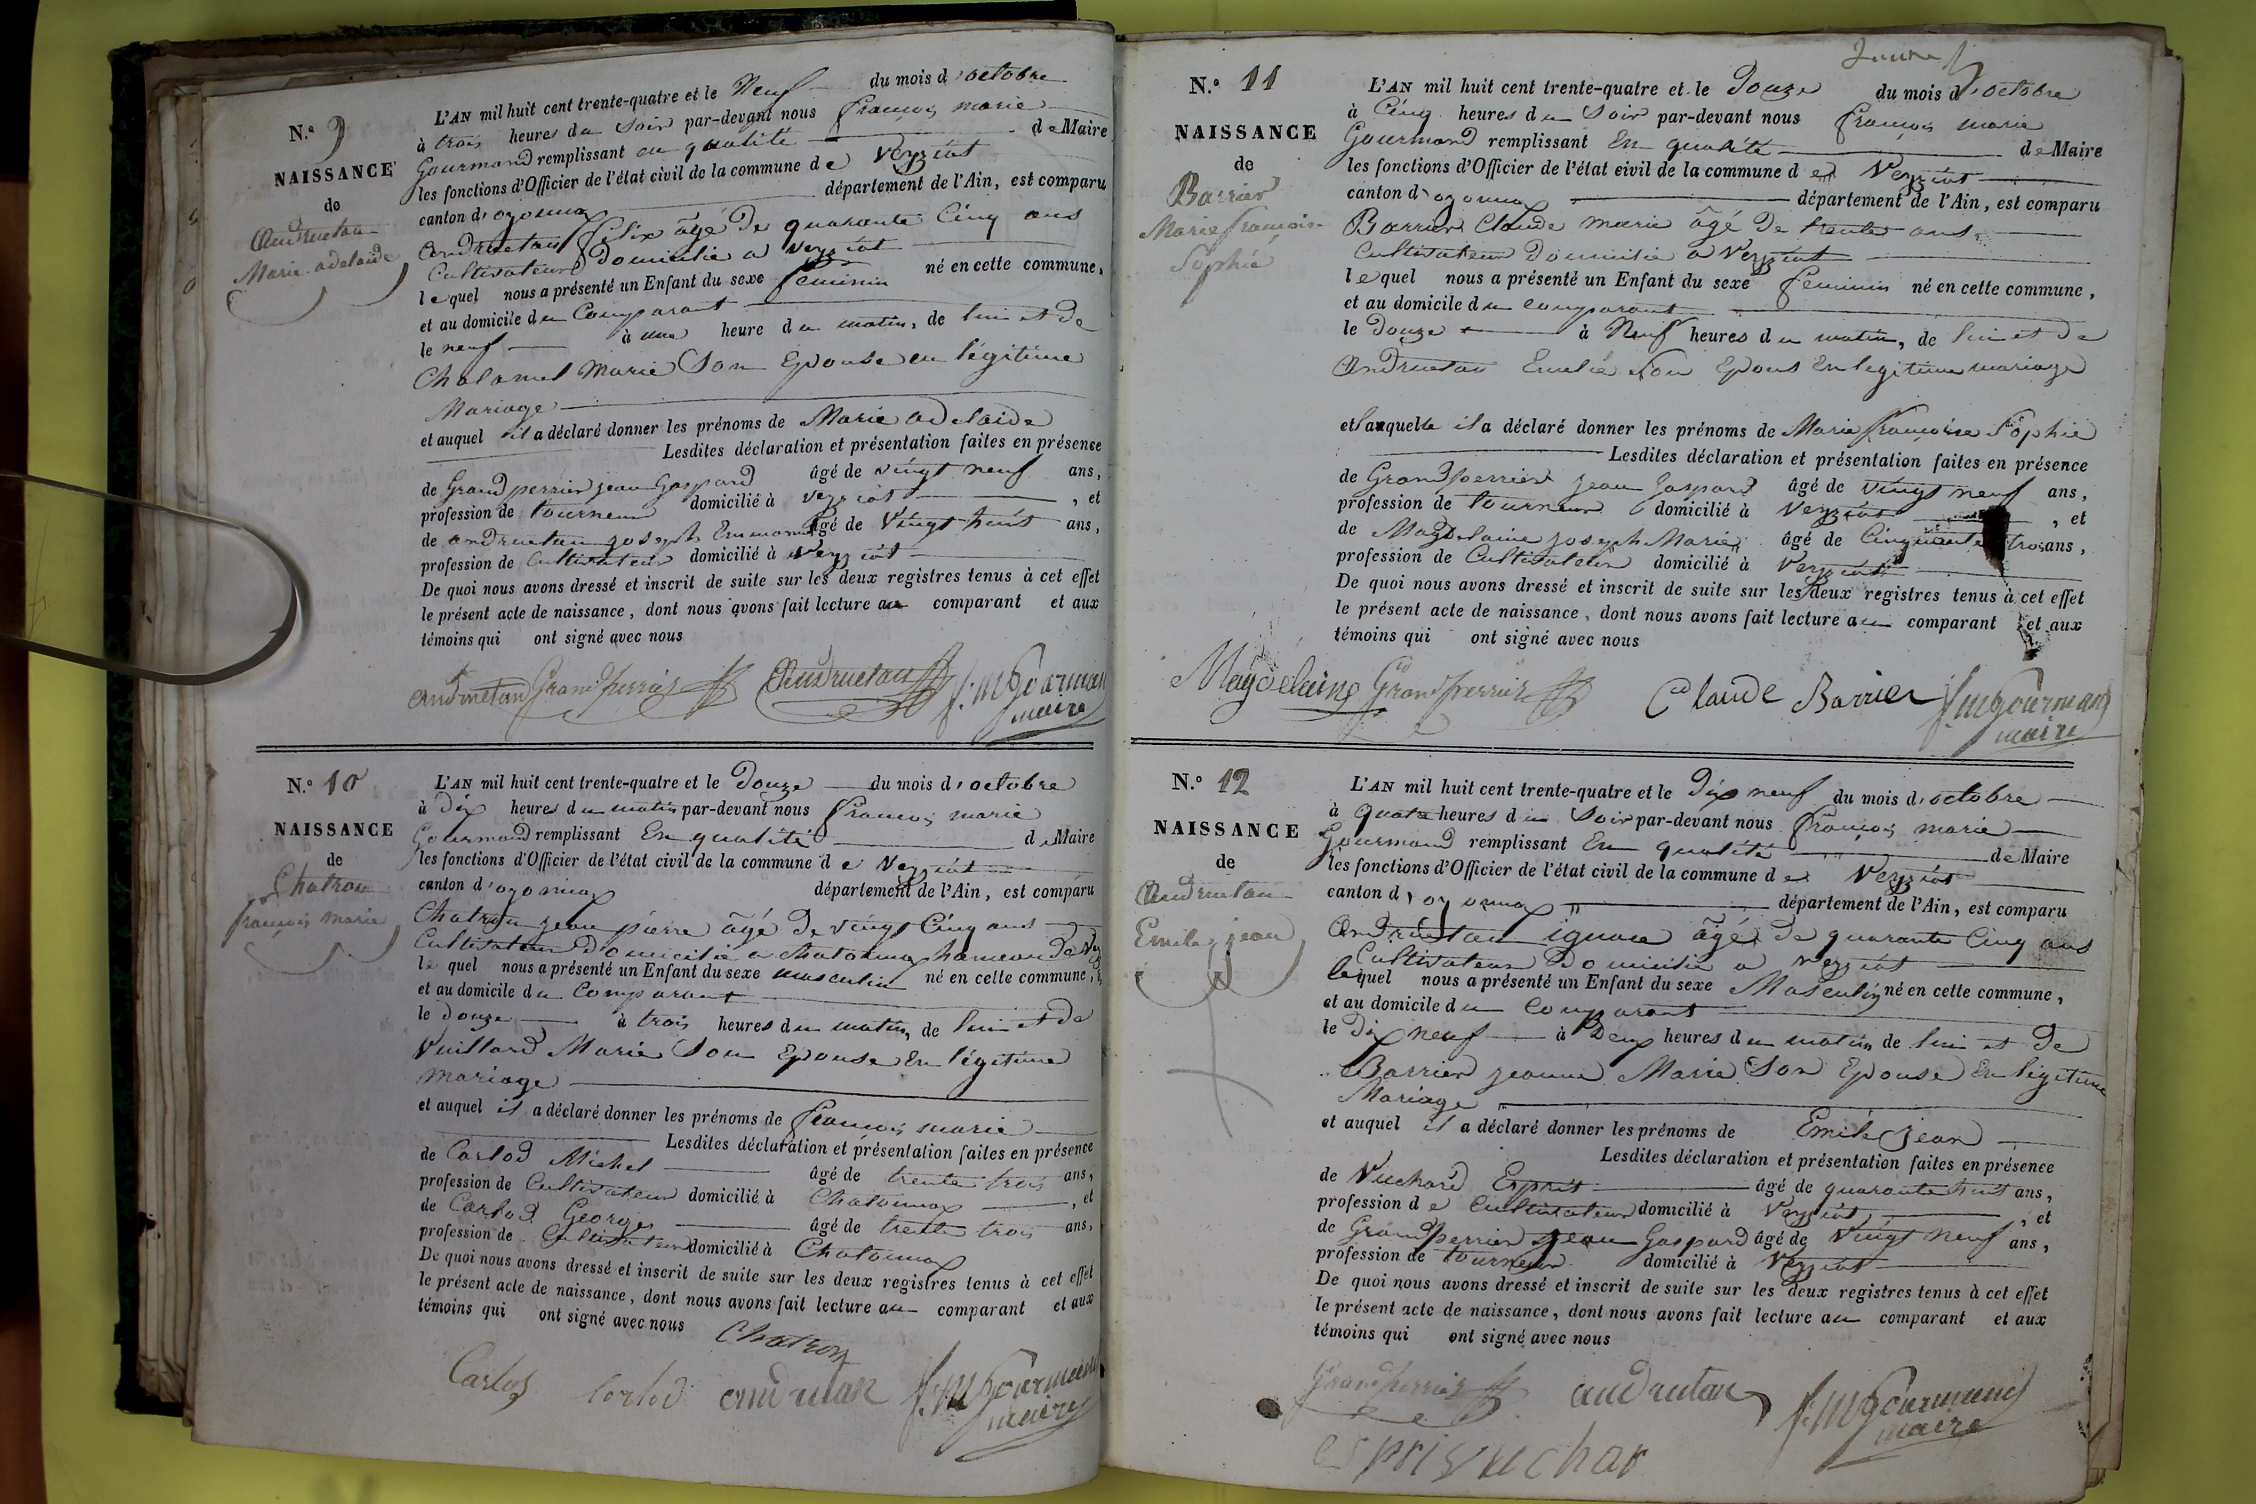 N.º 9
NAISSANCE
de
Andruetan
Marie adelaide
L'AN mil huit cent trente-quatre et le Neuf du mois d'octobre
à trois heures du Soir par-devant nous françois marie
Gourmand remplissant en qualité de Maire
les fonctions d'Officier de l'état civil de la commune de Veyziat
canton d'oyonnax département de l'Ain, est comparu
Andruetan félix âgé de quarante Cinq ans
Cultivateur domicilié a Veyziat
lequel nous a présenté un Enfant du sexe feminin né en cette commune,
et au domicile du Comparant
le neuf à une heure du matin, de lui et de
Chalamel Marie Son Epouse en légitime
Mariage
et auquel il a déclaré donner les prénoms de Marie adelaide
Lesdites déclaration et présentation faites en présence
de Grandperrier jean Gaspard âgé de vingt neuf ans,
profession de tourneur domicilié à veyziat, et
de andruetan joseph âgé de Vingt huit ans,
profession de Cultivateur domicilié à Veyziat
De quoi nous avons dressé et inscrit de suite sur les deux registres tenus à cet effet
le présent acte de naissance, dont nous avons fait lecture au comparant et aux
témoins qui ont signé avec nous
andruetan Grandperrier Andruetan f. m Gourmand
maire
N.º 10
NAISSANCE
de
Chatron
françois marie
L'AN mil huit cent trente-quatre et le Douze du mois d'octobre
à Dix heures du matin par-devant nous françois marie
Gourmand remplissant En qualité de Maire
les fonctions d'Officier de l'état civil de la commune de Veyziat
canton d'oyonnax département de l'Ain, est comparu
Chatron jean pierre âgé de vingt Cinq ans
Cultivateur Domicilié a Chatonnax hameau de
le quel nous a présenté un Enfant du sexe masculin né en cette commune,
et au domicile du Comparant
le douze à trois heures du matin, de lui et de
Vuillard Marie Son Epouse En légitime
mariage
et auquel il a déclaré donner les prénoms de françois marie
Lesdites déclaration et présentation faites en présence
de Carlod Michel âgé de trente trois ans,
profession de Cultivateur domicilié à Chatonnax, et
de Carlod Georges âgé de trente trois ans,
profession de Cultivateur domicilié à Chatonnax
De quoi nous avons dressé et inscrit de suite sur les deux registres tenus à cet effet
le présent acte de naissance, dont nous avons fait lecture au comparant et aux
témoins qui ont signé avec nous
Chatron
Carlod Corlod andrutan f. m Gourmand
maire
N.º 11
NAISSANCE
de
Barrier
Marie françoise
Sophie
L'AN mil huit cent trente-quatre et le Douze du mois d'octobre
à Cinq heures du Soir par-devant nous françois marie
Gourmand remplissant En qualité de Maire
les fonctions d'Officier de l'état civil de la commune de Veyziat
canton d'oyonnax département de l'Ain, est comparu
Barrier Claude marie âgé De trente ans,
Cultivateur Domicilié a Veyziat
lequel nous a présenté un Enfant du sexe feminin né en cette commune,
et au domicile du comparant
le Douze à Neuf heures du matin, de lui et de
Andruetan Emelie Son Epous En legitime mariage
et laquelle il a déclaré donner les prénoms de Marie françoise Sophie
Lesdites déclaration et présentation faites en présence
de Grandperrier jean Gaspard âgé de vingt neuf ans,
profession de tourneur domicilié à Veyziat, et
de Magdelaine joseph Marie âgé de Cinquante trois ans,
profession de Cultivateur domicilié à Veyziat
De quoi nous avons dressé et inscrit de suite sur les deux registres tenus à cet effet
le présent acte de naissance, dont nous avons fait lecture au comparant et aux
témoins qui ont signé avec nous
Magdelaine Grandperrier Claude Barrier f. m Gourmand
maire
N.º 12
NAISSANCE
de
Andruetan
Emile jean
L'AN mil huit cent trente-quatre et le Dix neuf du mois d'octobre
à quatre heures du Soir par-devant nous françois marie
Gourmand remplissant En qualité de Maire
les fonctions d'Officier de l'état civil de la commune de Veyziat
canton d'oyonnax département de l'Ain, est comparu
Andruetan ignace âgé de quarante Cinq ans
Cultivateur Domicilié a veyziat
lequel nous a présenté un Enfant du sexe Masculin né en cette commune,
et au domicile du Comparant
le Dix neuf à Deux heures du matin de lui et de
Barrier jeanne Marie Son Epouse En légitime
Mariage
et auquel il a déclaré donner les prénoms de Emile jean
Lesdites déclaration et présentation faites en présence
de Vuchard Esprit âgé de quarante huit ans,
profession de Cultivateur domicilié à Veyziat, et
de Grandperrier Jean Gaspard âgé de Vingt neuf ans,
profession de tourneur domicilié à Veyziat
De quoi nous avons dressé et inscrit de suite sur les deux registres tenus à cet effet
le présent acte de naissance, dont nous avons fait lecture au comparant et aux
témoins qui ont signé avec nous
Grandperrier andrutan f. m Gourmand
maire
esprit vuchar